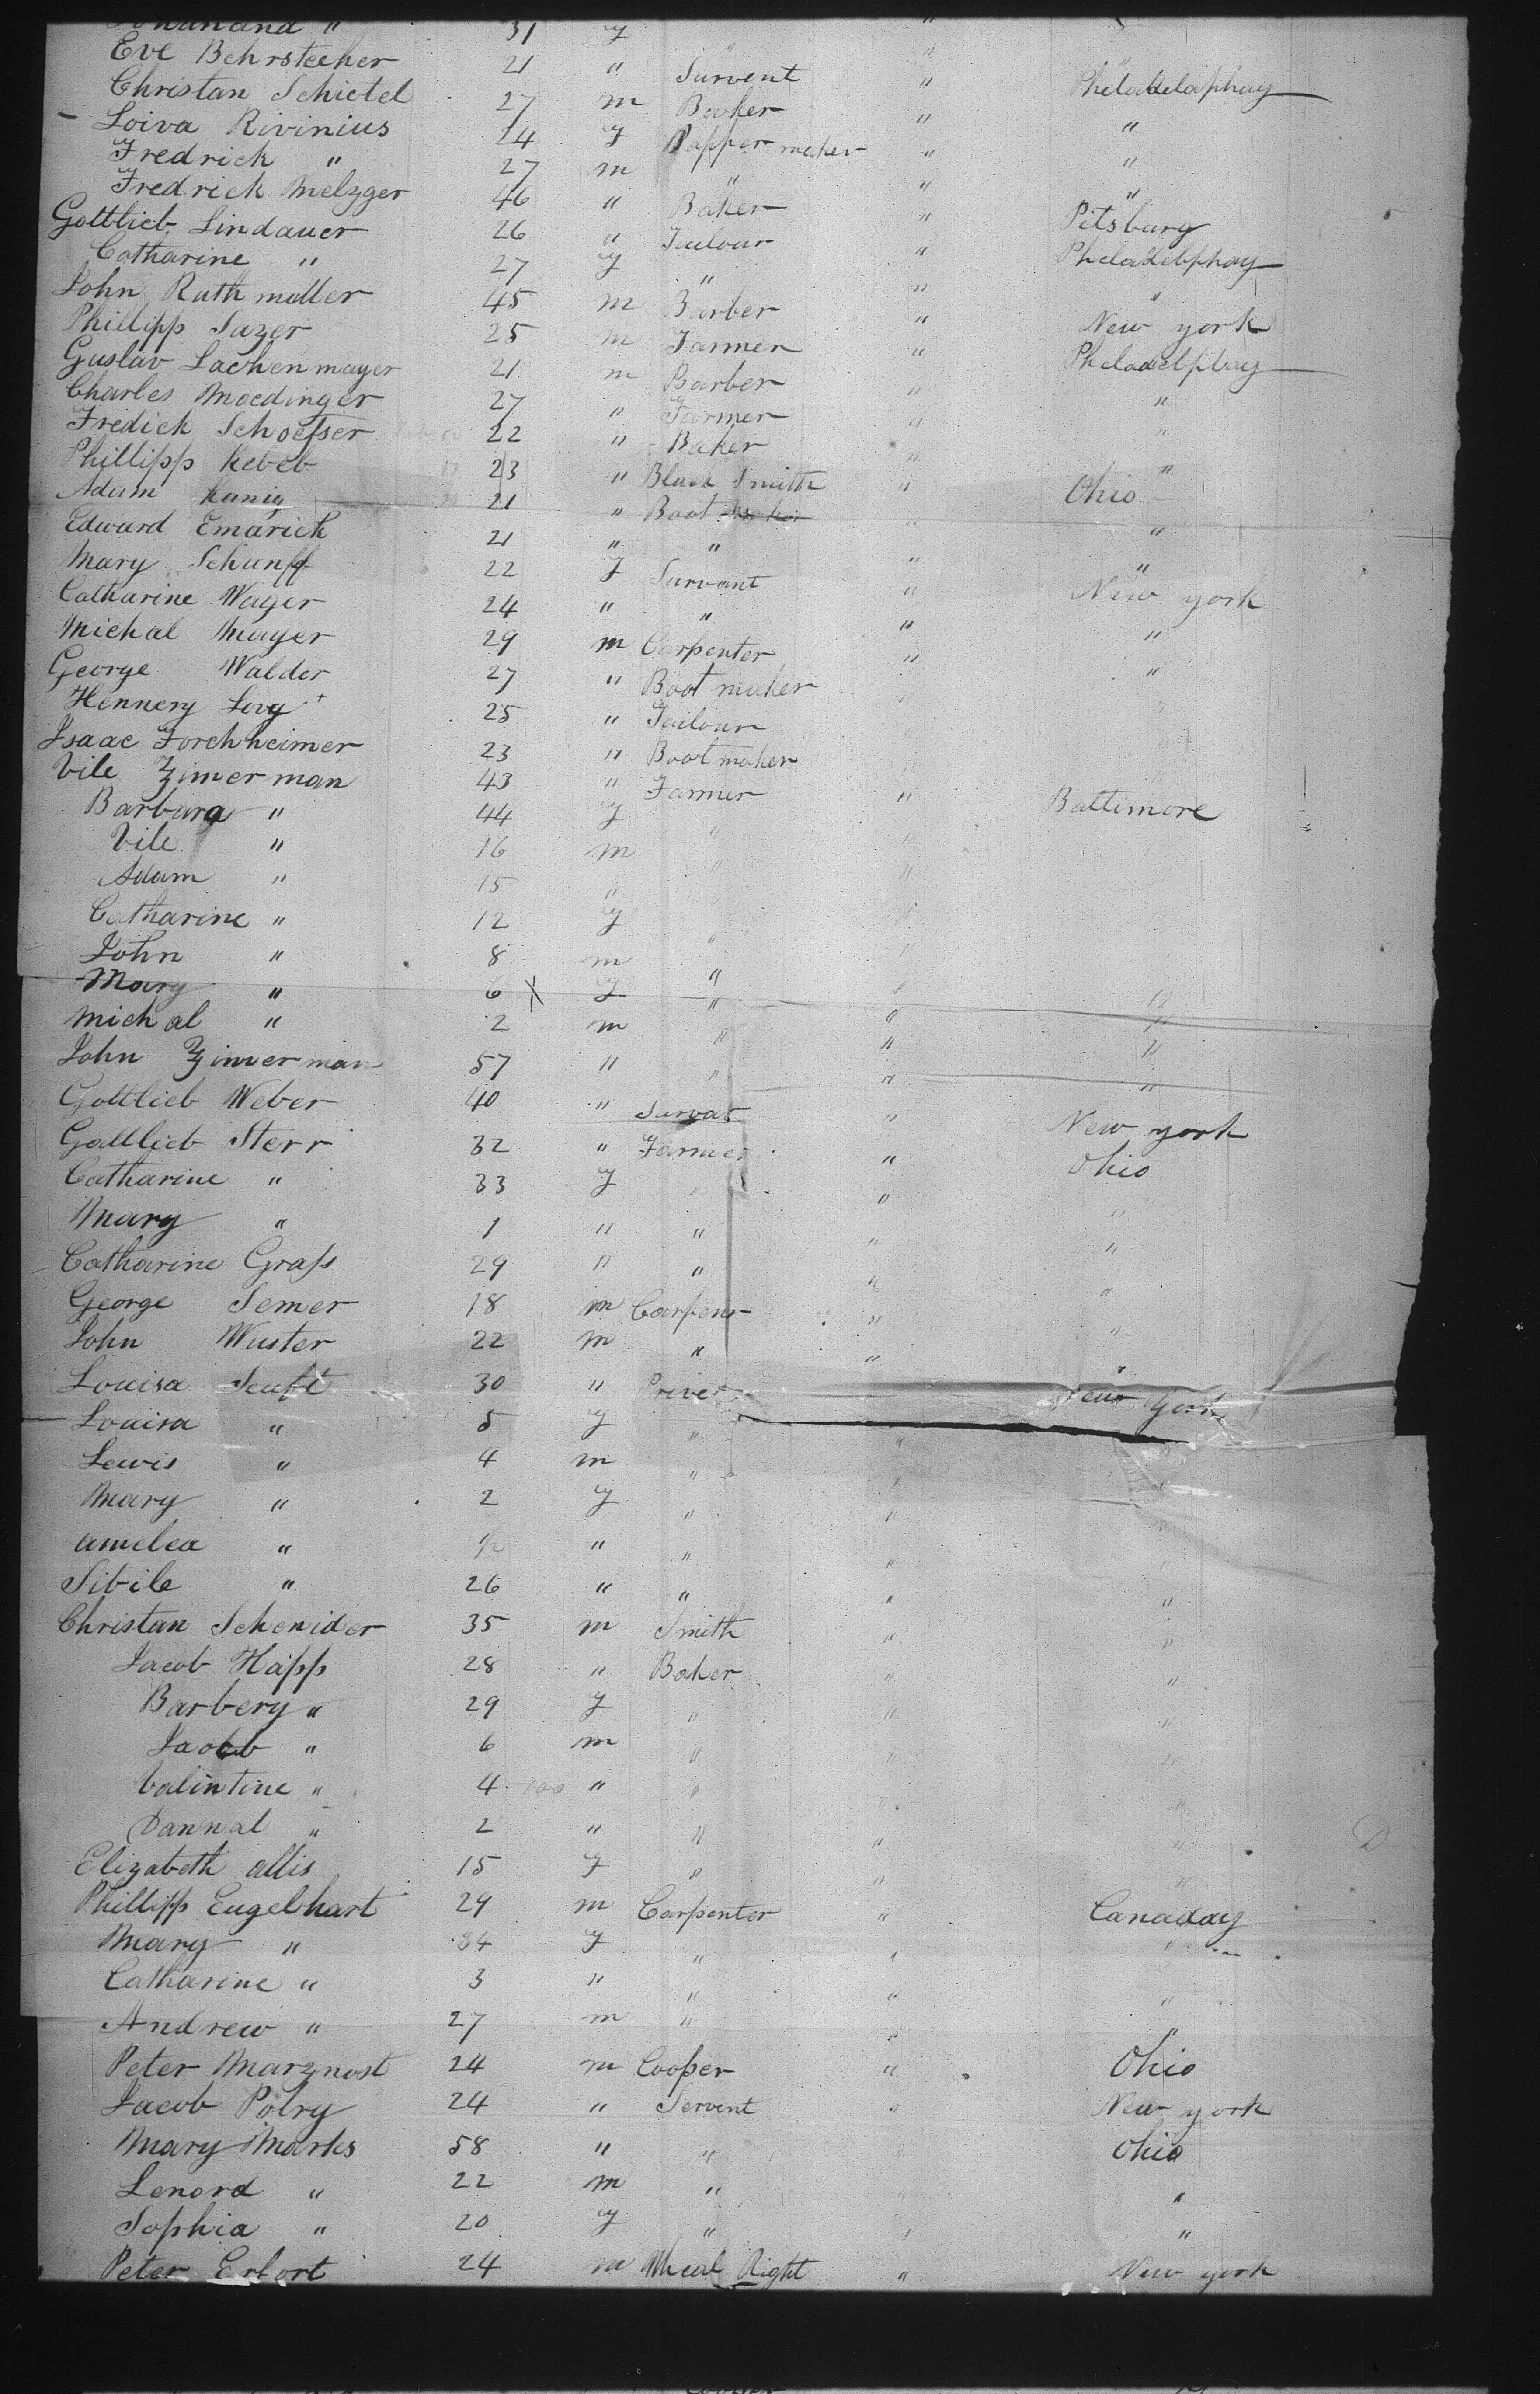 31 f " "
Eve Behrsteeher 21 " Survent " "
Christan Schietel 27 m Baker " Pheladelaphay
Loiva Rivinius 24 f Papper maker " "
Fredrick " 27 m " " "
Fredrick Melzger 46 " Baker " "
Gottlieb Lindauer 26 " Taulour " Pitsburg
Catharine " 27 f " " Pheladelphay
John Ruthmaller 45 m Barber " "
Phillipp Sazer 25 m Farmer " New york
Guslav Lachenmayer 21 m Barber " Pheladelphay
Charles Moedinger 27 " Farmer " "
Fredick Schoefser 22 " Baker " "
Phillipp Kebeb 23 " Black Smith " "
Adam Kanig 21 " Boot maker Ohio
Edward Emarick 21 " " " "
Mary Schunff 22 f Survant " "
Catharine Wager 24 " " " New york
Michal Mayer 29 m Carpenter " "
George Walder 27 " Boot maker " "
Hennery Lorg 25 " Tailour " "
Isaac Forchheimer 23 " Boot maker " "
Vile Zimerman 43 " Farmer " "
Barbara " 44 f " " Baltimore
Vile " 16 m " "
Adam " 15 " "
Catharine " 12 f "
John " 8 m " "
Mary " 6 X f " " "
Michal " 2 m " " "
John Zimerman 57 " " " "
Gottlieb Weber 40 " Survat " New york
Gattlieb Sterr 32 " Farmer " Ohio
Catharine " 33 f " " "
Mary " 1 " " " "
Catharine Grafs 29 " " " "
George Semer 18 m Carpenr " "
John Wuster 22 m " " "
Louisa Seubt 30 " Prive New York
Louisa " 5 f " " "
Lewis " 4 m " " "
Mary " 2 f " " "
amelea " 1/2 " " " "
Sibile " 26 " " " "
Christan Schenider 35 m Smith " "
Jacob Happ 28 " Baker " "
Barbery " 29 f " " "
Jacob " 6 m " " "
Valintine " 4 " " " "
Dannal " 2 " " " "
Elizabeth allis 15 f " " "
Phillipp Eugelhart 29 m Carpenter " Canaday
Mary " 34 f " " "
Catharine " 3 " " " "
Andrew " 27 m " " "
Peter Marznost 24 m Cooper " Ohio
Jacob Polry 24 " Servent " New york
Mary Marks 58 " " " Ohio
Lenord " 22 m " " "
Sophia " 20 f " " "
Peter Erlort 24 m Wheal Right " New york